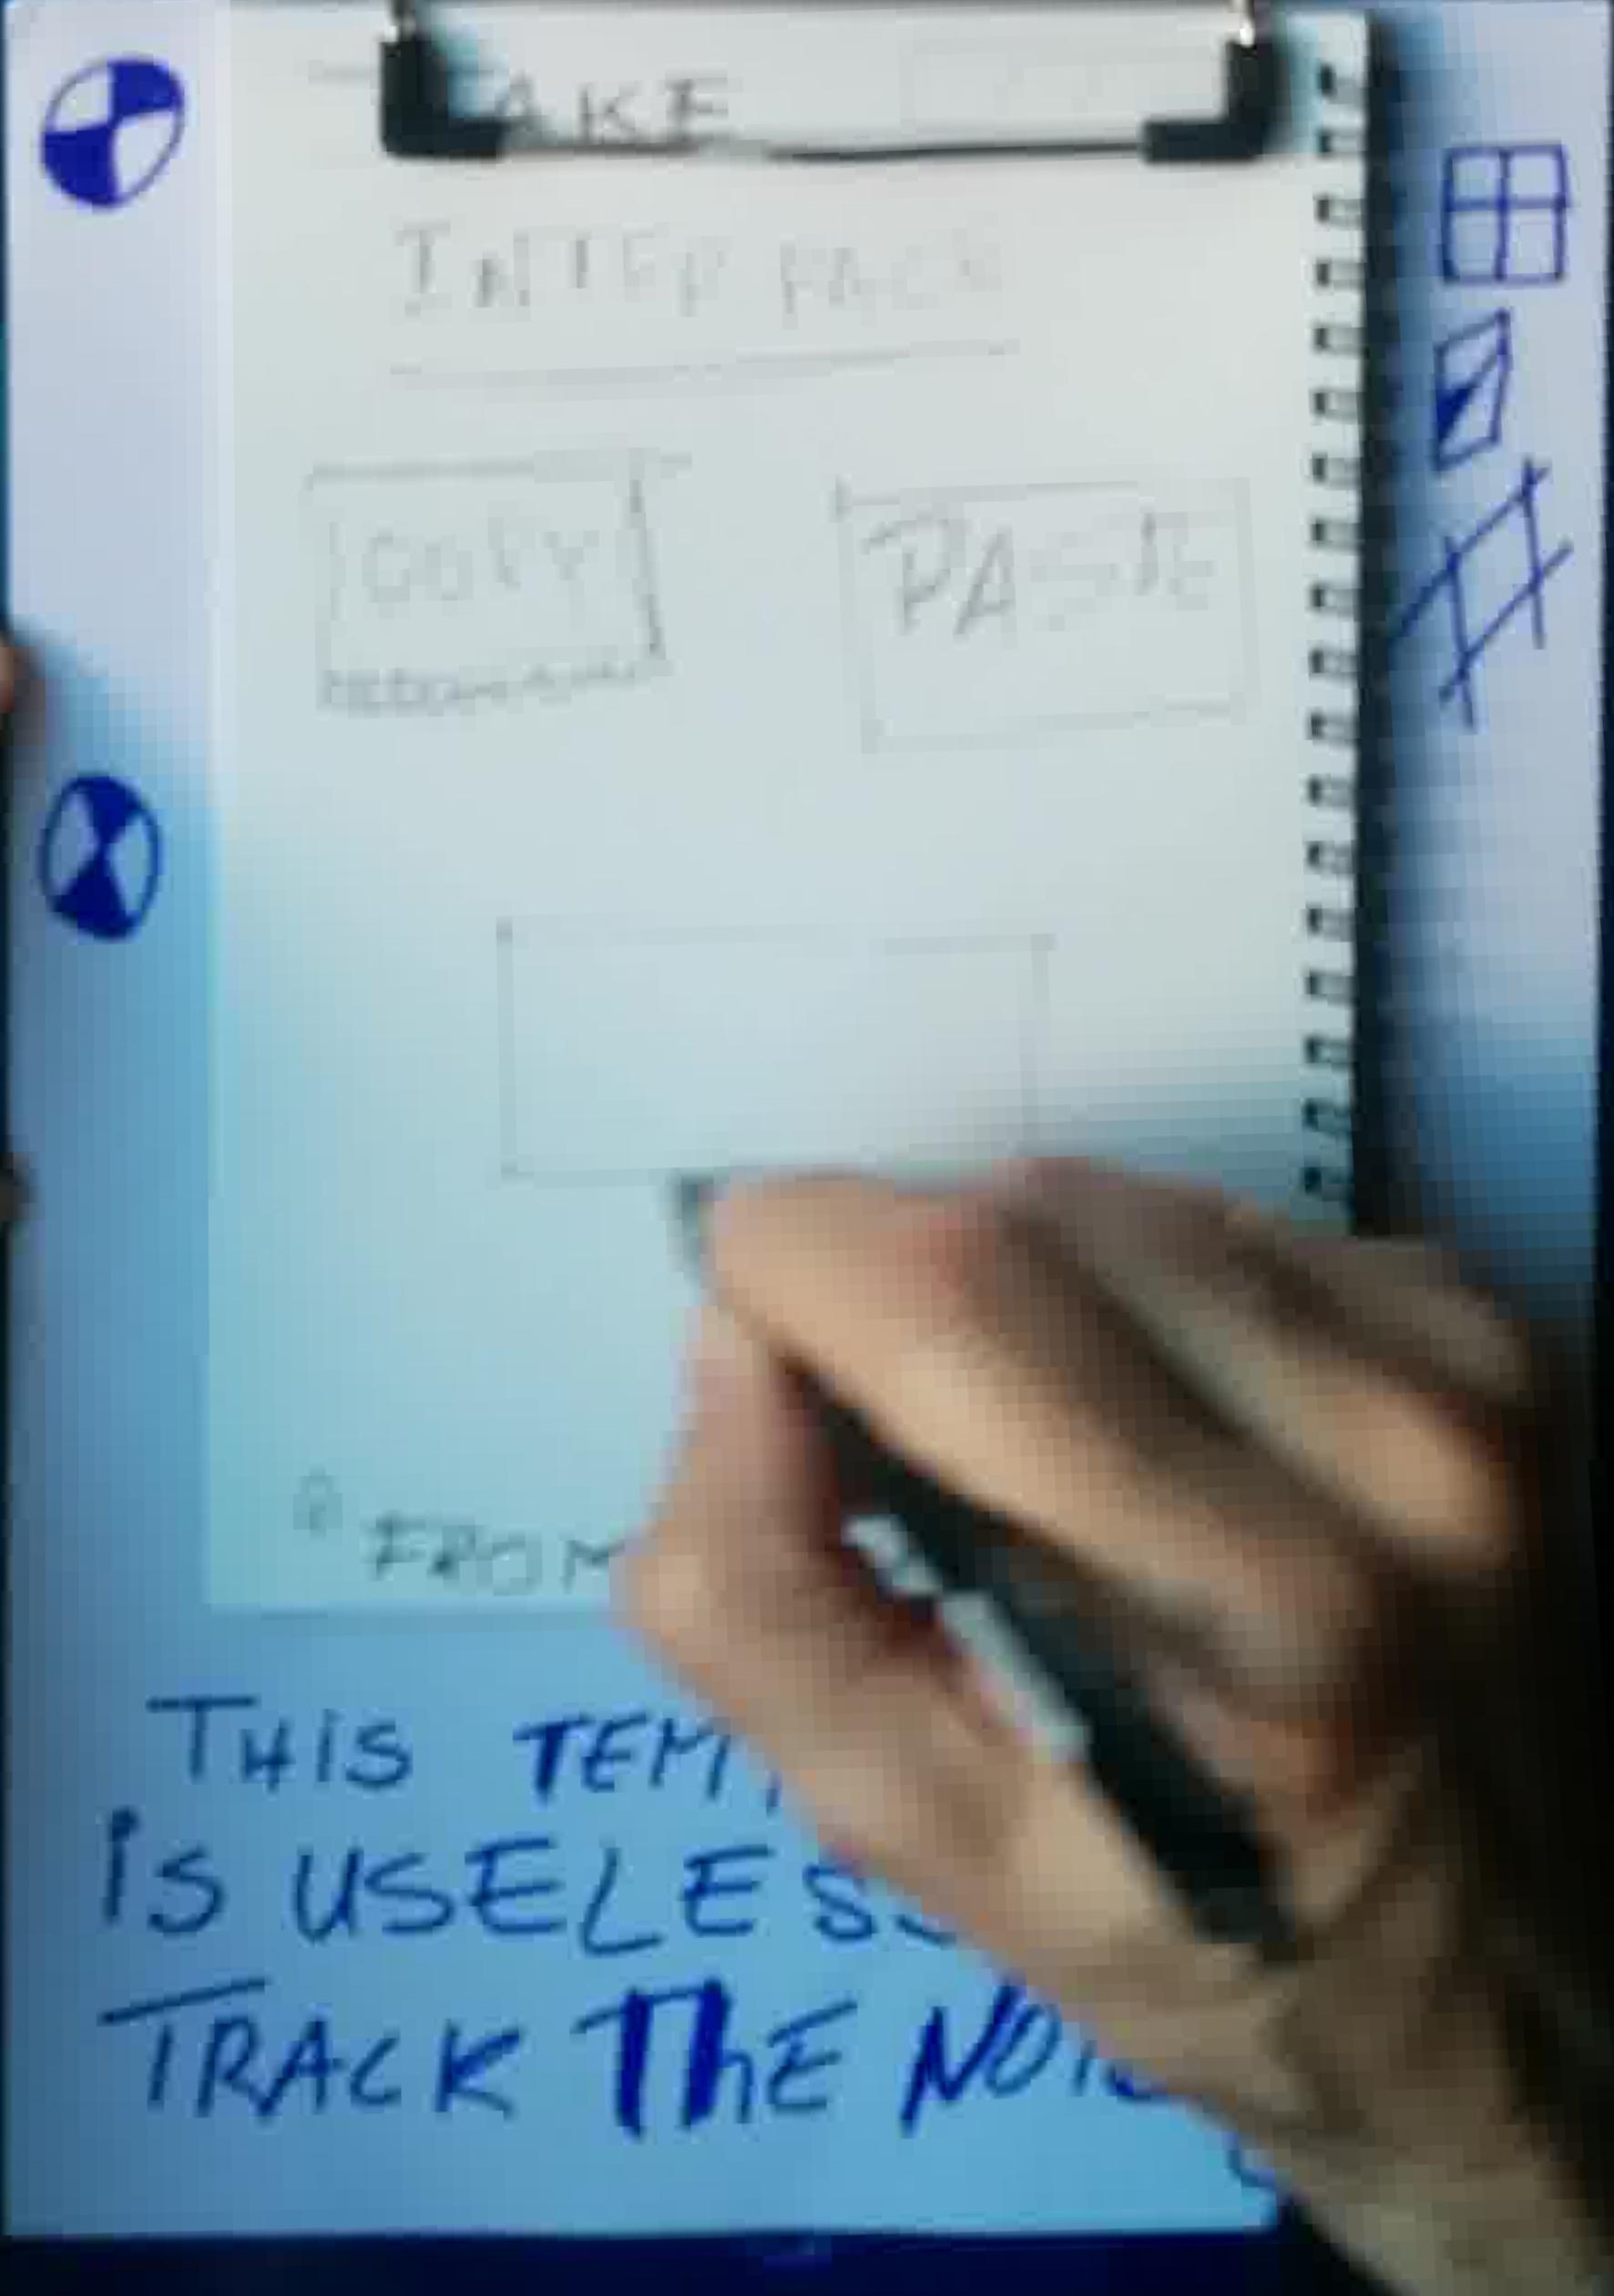 AKE
INTERFACE
COPY
PASTE
FROM
THIS
IS USELESS
TRACK THE